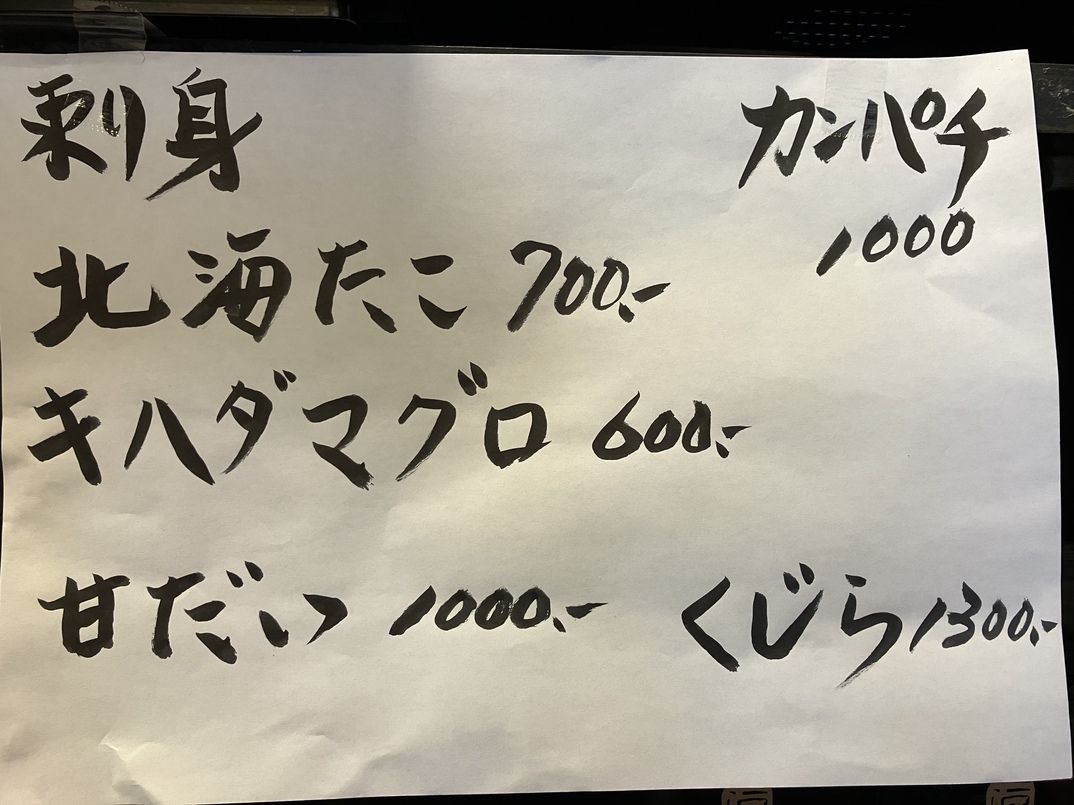 刺身
カンパチ
1000
北海たこ 700.-
キハダマグロ 600.-
甘だい 1000.-
くじら 1300.-